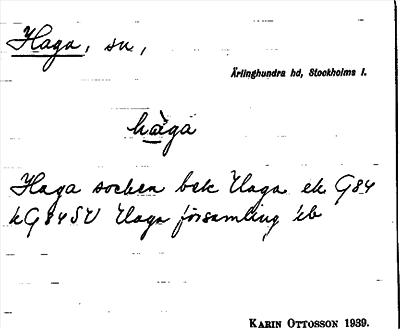 Haga, sn,
Ärlinghundra hd, Stockholms l.
hàga
Haga socken bek Haga ek G84
kG84SV Haga församling
KARIN OTTOSSON 1939.